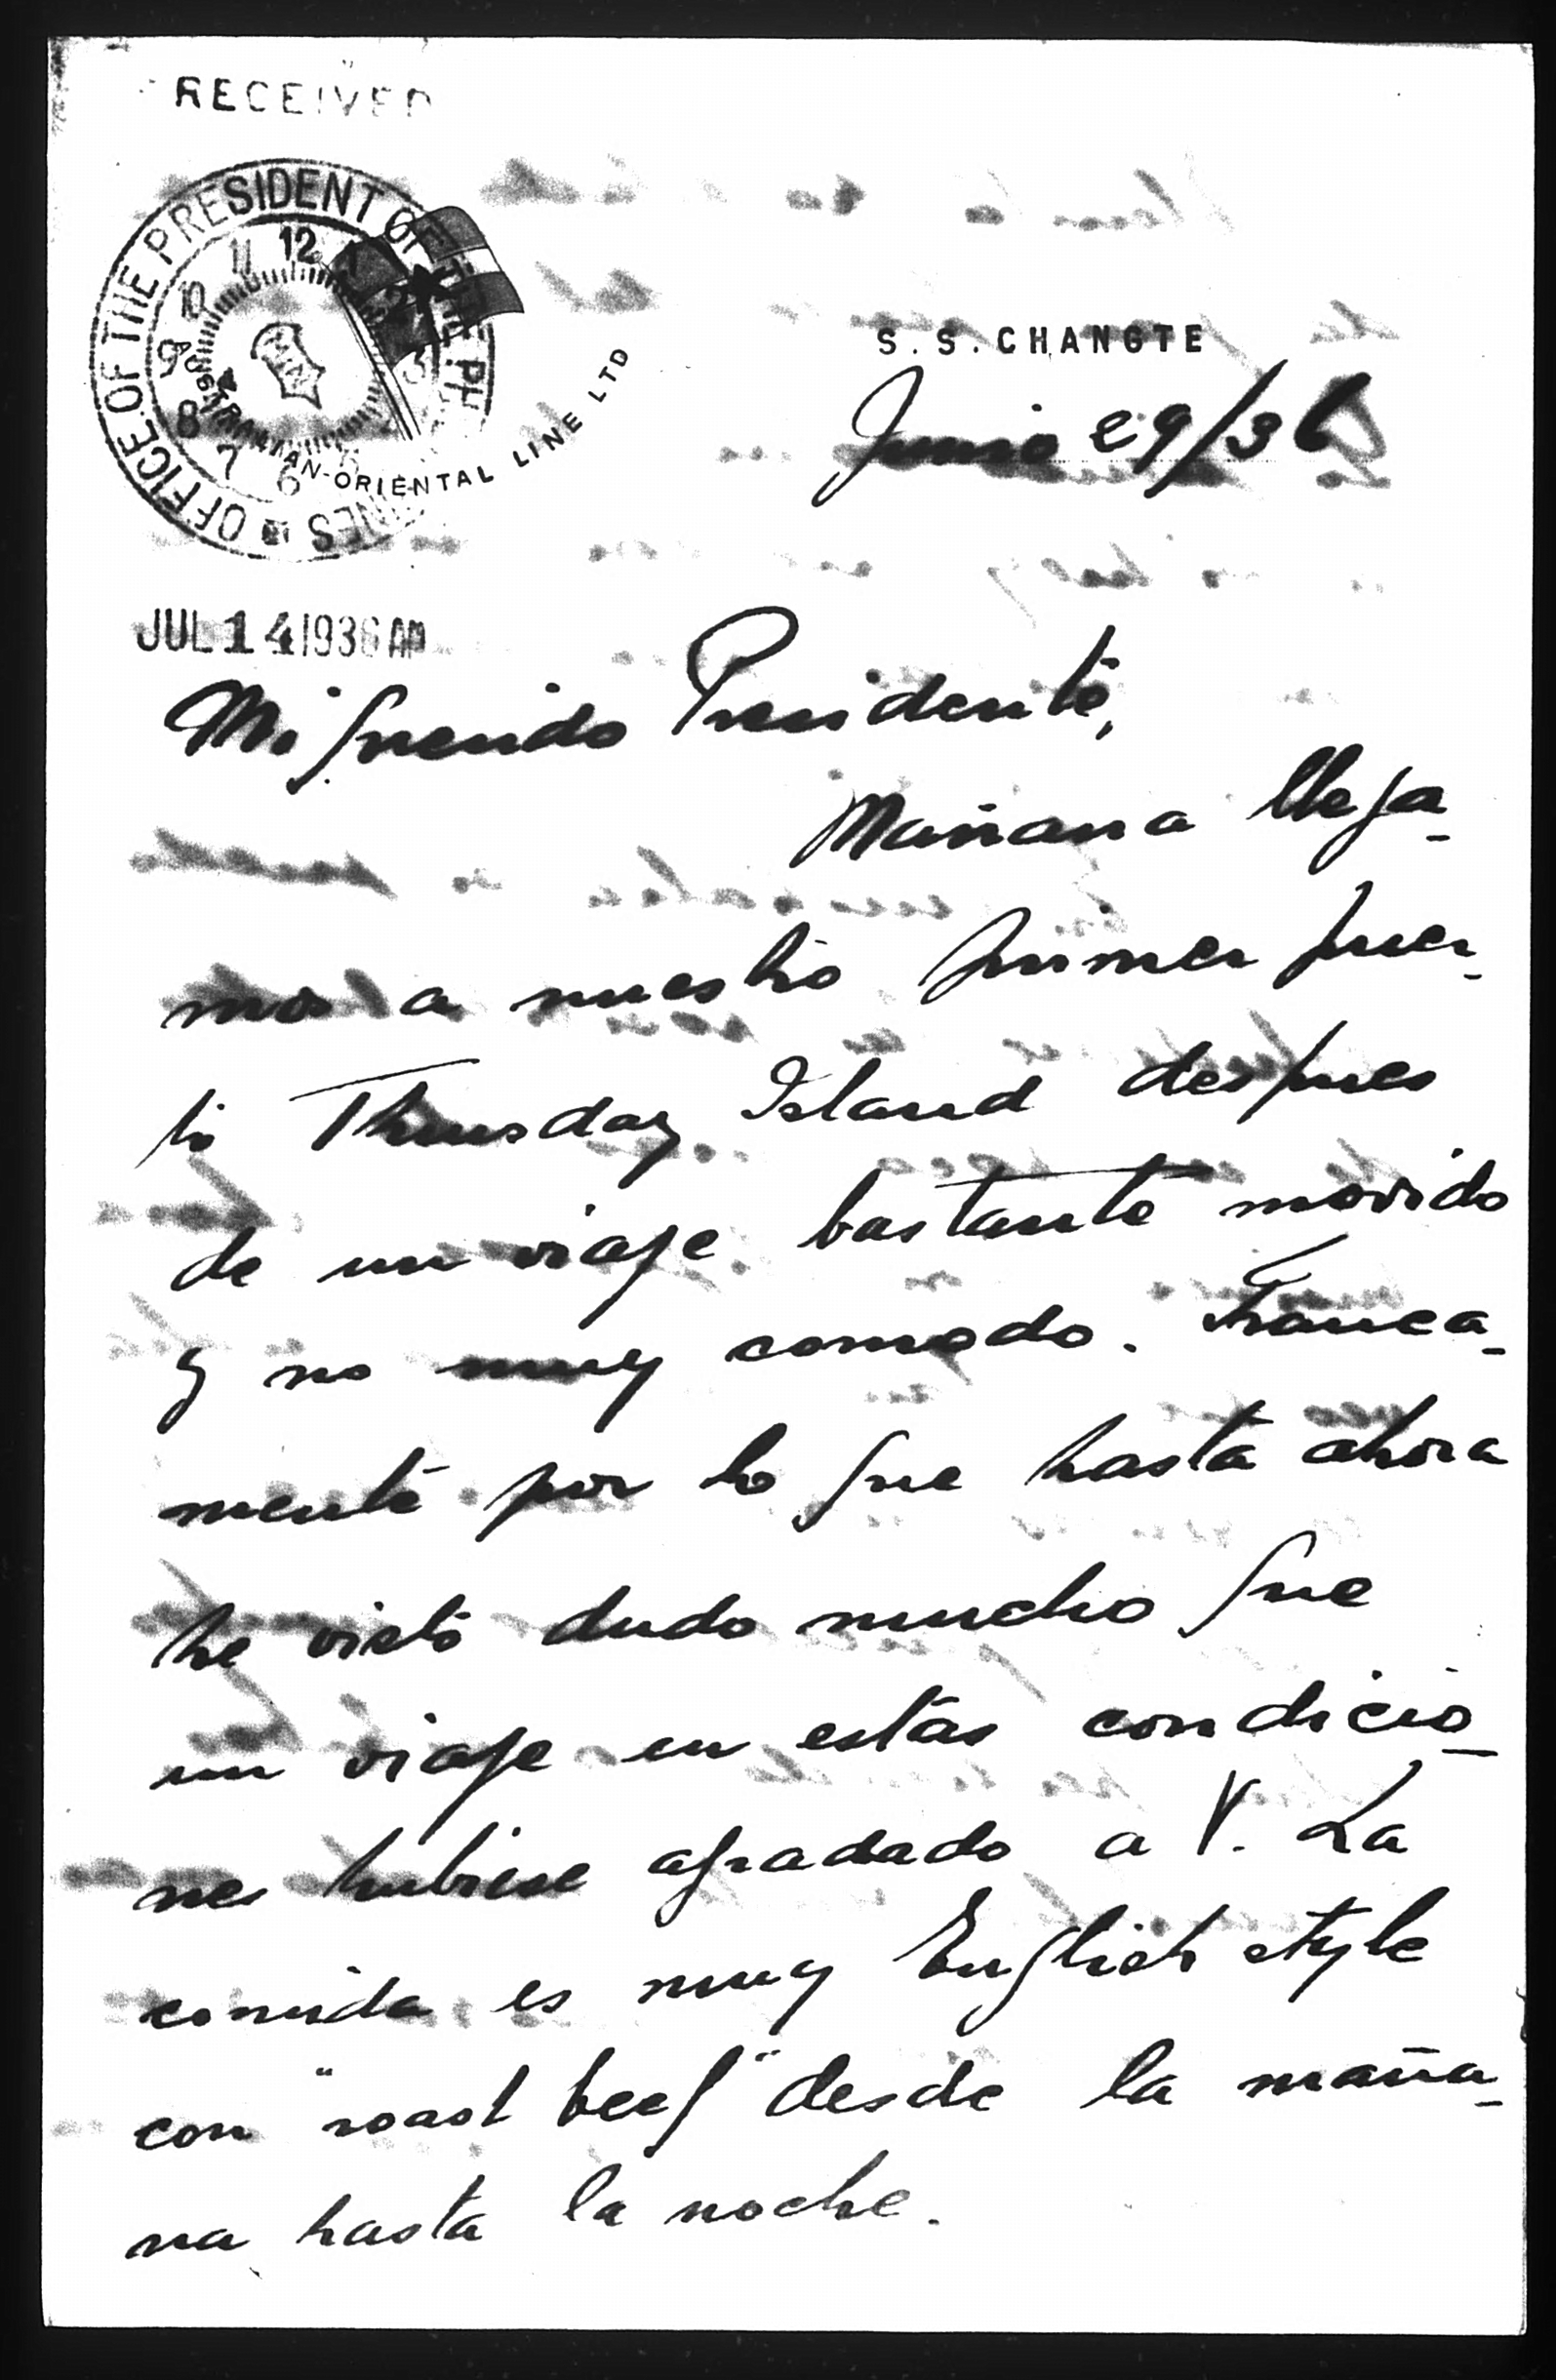 RECEIVED
OFFICE OF THE PRESIDENT OF THE PHILIPPINES
12 1 2 3 6 7 8 9 10 11
AUSTRALIAN-ORIENTAL LINE LTD
S.S. CHANGTE
Junio 29/36
JUL 14 1936 AM
Mi querido Presidente,
Mañana llega-
mos a nuestro primer puer-
to Thursday Island despues
de un viaje bastante movido
y no muy comodo. Franca-
mente por lo que hasta ahora
he visto dudo mucho que
un viaje en estas condicio-
nes hubiese agradado a V. La
comida es muy English style
con "roast beef" desde la maña-
na hasta la noche.